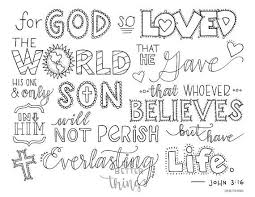 for GOD so LOVED
THE WORLD THAT HE Gave
HIS ONE & only SON THAT WHOEVER BELIEVES
IN HIM will NOT PERISH but have
Everlasting Life.
BETTER things
JOHN 3:16